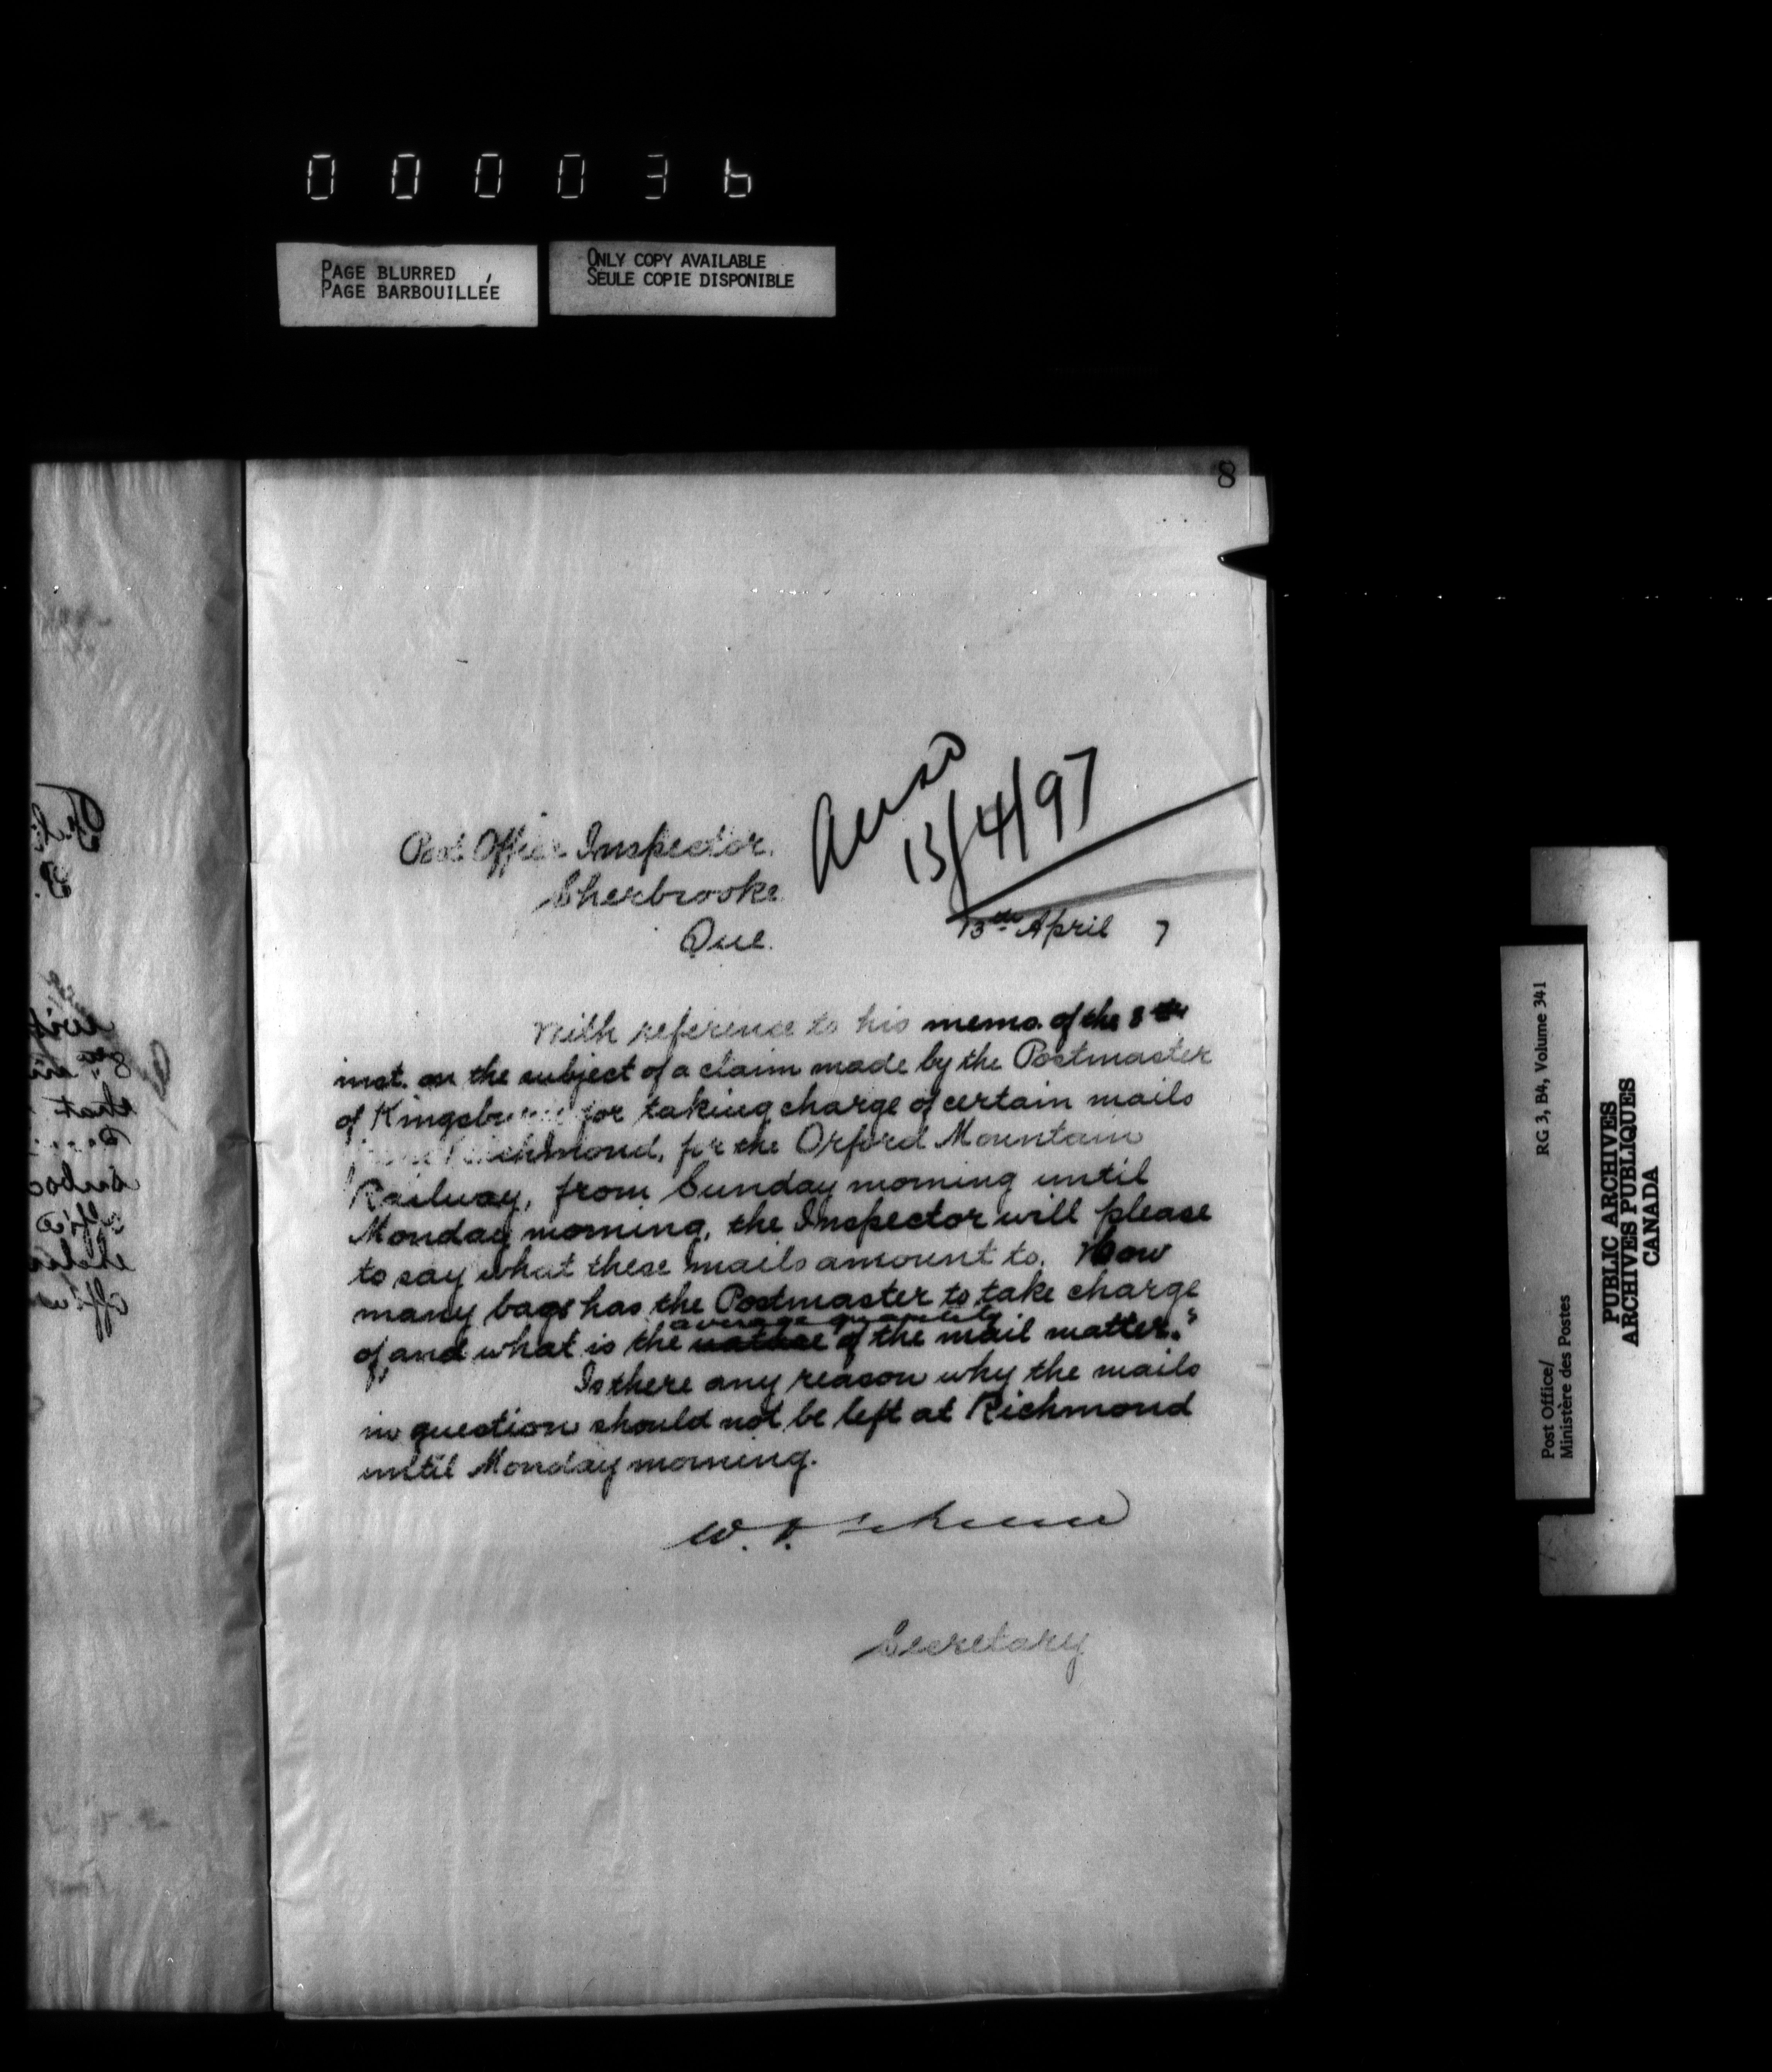 000036
PAGE BLURRED
PAGE BARBOUILLÉE
ONLY COPY AVAILABLE
SEULE COPIE DISPONIBLE
8
13/4/97
Post Office Inspector.
Sherbrooke
Que.
13th April 7
With reference to his memo. of the 8th
inst. on the subject of a claim made by the Postmaster
of for taking charge of certain mails
Richmond, for the Orford Mountain
Railway, from Sunday morning until
Monday morning, the Inspector will please
to say what these mails amount to. How
many bags has the Postmaster to take charge
average quantity
of, and what is the nature of the mail matter."
Is there any reason why the mails
in question should not be left at Richmond
until Monday morning.
W.
Secretary
RG 3, B4, Volume 341
Post Office/
Ministère des Postes
PUBLIC ARCHIVES
ARCHIVES PUBLIQUES
CANADA